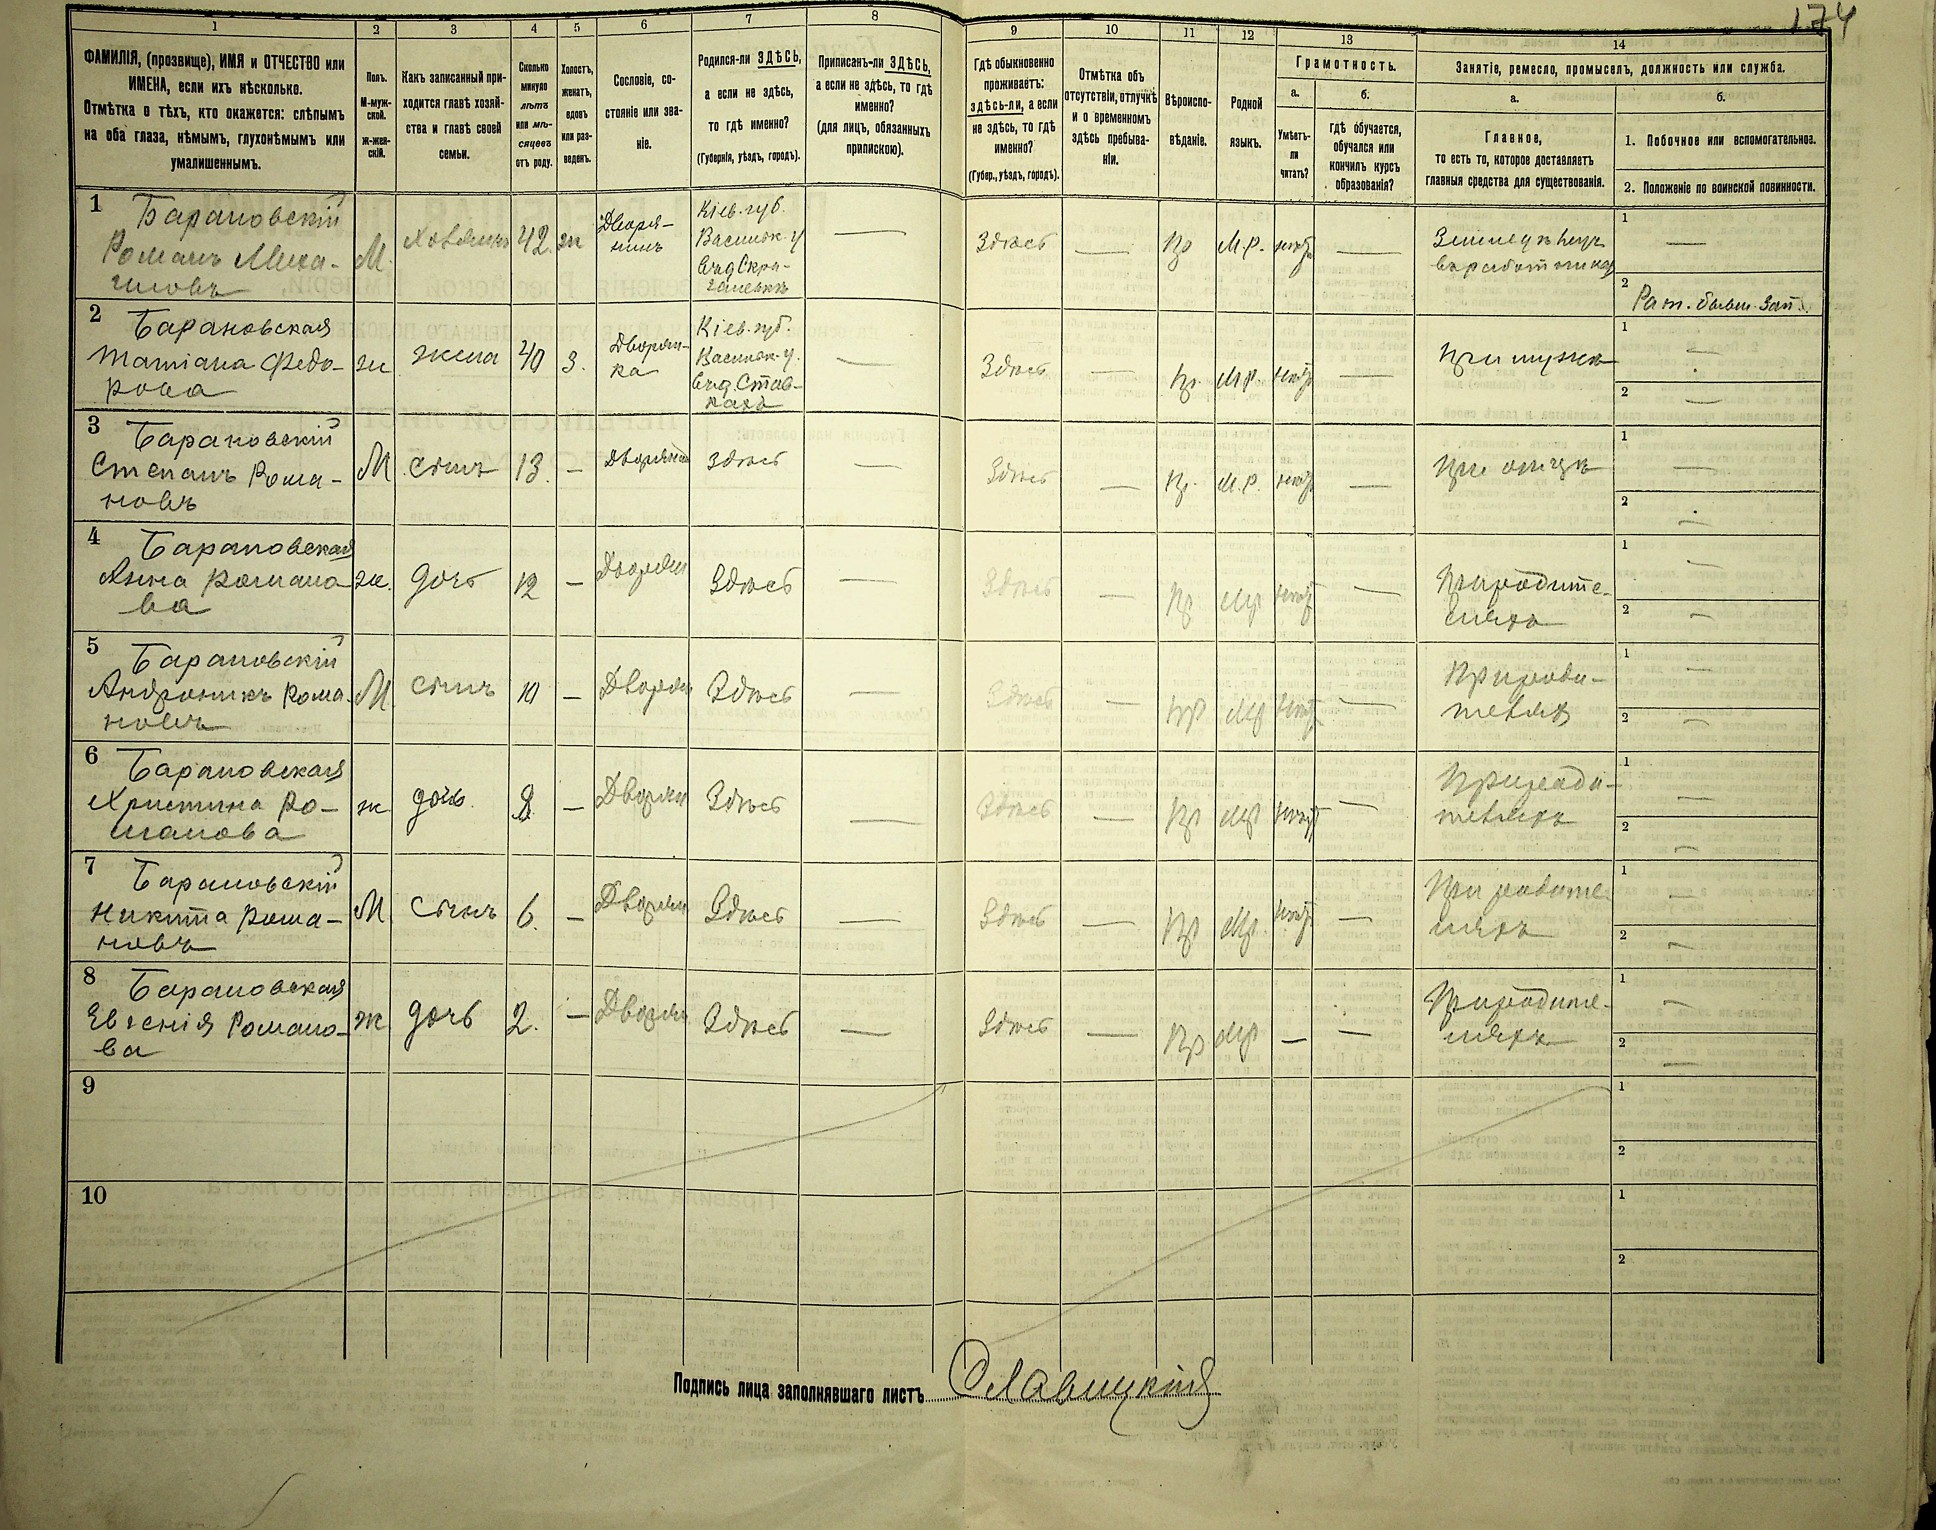 174
1 2 3 4 5 6 7 8 9 10 11 12 13 14
ФАМИЛІЯ, (прозвище), ИМЯ и ОТЧЕСТВО или
ИМЕНА, если ихъ нѣсколько.
Отмѣтка о тѣхъ, кто окажется: слѣпымъ
на оба глаза, нѣмымъ, глухонѣмымъ или
умалишеннымъ.
Полъ.
М-муж-
ской.
Ж-жен-
скій.
Какъ записанный при-
ходится главѣ хозяй-
ства и главѣ своей
семьи.
Сколько
минуло
лѣтъ
или мѣ-
сяцевъ
отъ роду.
Холостъ,
женатъ,
вдовъ
или раз-
веденъ.
Сословіе, со-
стояніе или зва-
ніе.
Родился-ли ЗДѢСЬ,
а если не здѣсь,
то гдѣ именно?
(Губернія, уѣздъ, городъ).
Приписанъ-ли ЗДѢСЬ,
а если не здѣсь, то гдѣ
именно?
(для лицъ, обязанныхъ
припискою).
Гдѣ обыкновенно
проживаетъ:
здѣсь-ли, а если
не здѣсь, то гдѣ
именно?
(Губер., уѣздъ, городъ).
Отмѣтка объ
отсутствіи, отлучкѣ
и о временномъ
здѣсь пребыва-
ніи.
Вѣроиспо-
вѣданіе.
Родной
языкъ.
Грамотность.
а.
Умѣетъ-
ли
читать?
б.
гдѣ обучается,
обучался или
кончилъ курсъ
образованія?
Занятіе, ремесло, промыселъ, должность или служба.
а.
Главное,
то есть то, которое доставляетъ
главныя средства для существованія.
б.
1. Побочное или вспомогательное.
2. Положеніе по воинской повинности.
1 Барановскій
Романъ Миха-
иловъ
М. Хозяинъ 42 ж
Дворя-
нинъ
Кіев. губ.
Васильк. у
— Здѣсь — Пр М.р. — 1 —
2 Рат. бывш. зап.
2 Барановская
Татіана Федо-
рова
ж жена 40 з.
Дворян-
ка
Кіев. губ.
Васильк. у.
— Здѣсь — Пр. М.р. При мужѣ 1 —
2 —
3 Барановскій
Степанъ Рома-
новъ
М сынъ 13. — Здѣсь — Здѣсь — Пр. М.р. — При отцѣ 1 —
2 —
4 Барановская
Анна Романо-
ва
ж. дочь 12 — Дворян Здѣсь — Здѣсь — Пр Мр —
При родите-
ляхъ
1 —
2 —
5 Барановскій
Андроникъ Рома-
новъ
М. сынъ 10 — Дворян Здѣсь — Здѣсь — Пр Мр —
При роди-
теляхъ
1 —
2 —
6 Барановская
Христина Ро-
манова
ж дочь. 8 — Дворян Здѣсь — Здѣсь — Пр Мр —
При роди-
теляхъ
1 —
2 —
7 Барановскій
Никита Рома-
новъ
М сынъ 6. — Дворян Здѣсь — Здѣсь — Пр Мр —
При родите-
ляхъ
1 —
2 —
8 Барановская
Евгенія Романо-
ва
ж дочь 2. — Дворян Здѣсь — Здѣсь — Пр Мр — —
При родите-
ляхъ
1 —
2 —
9 1
2
10 1
2
Подпись лица заполнявшаго листъ Славицкій